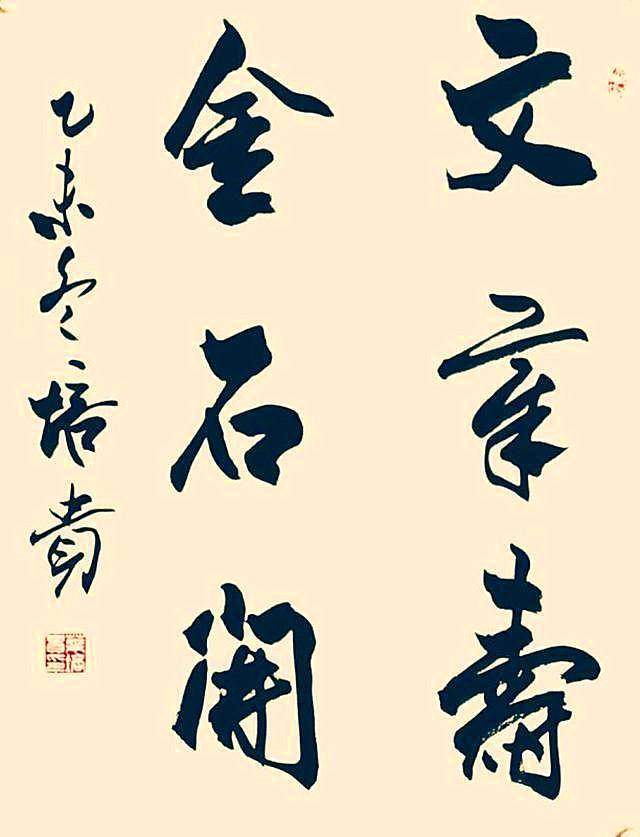 文章壽
金石開
乙未冬培貴